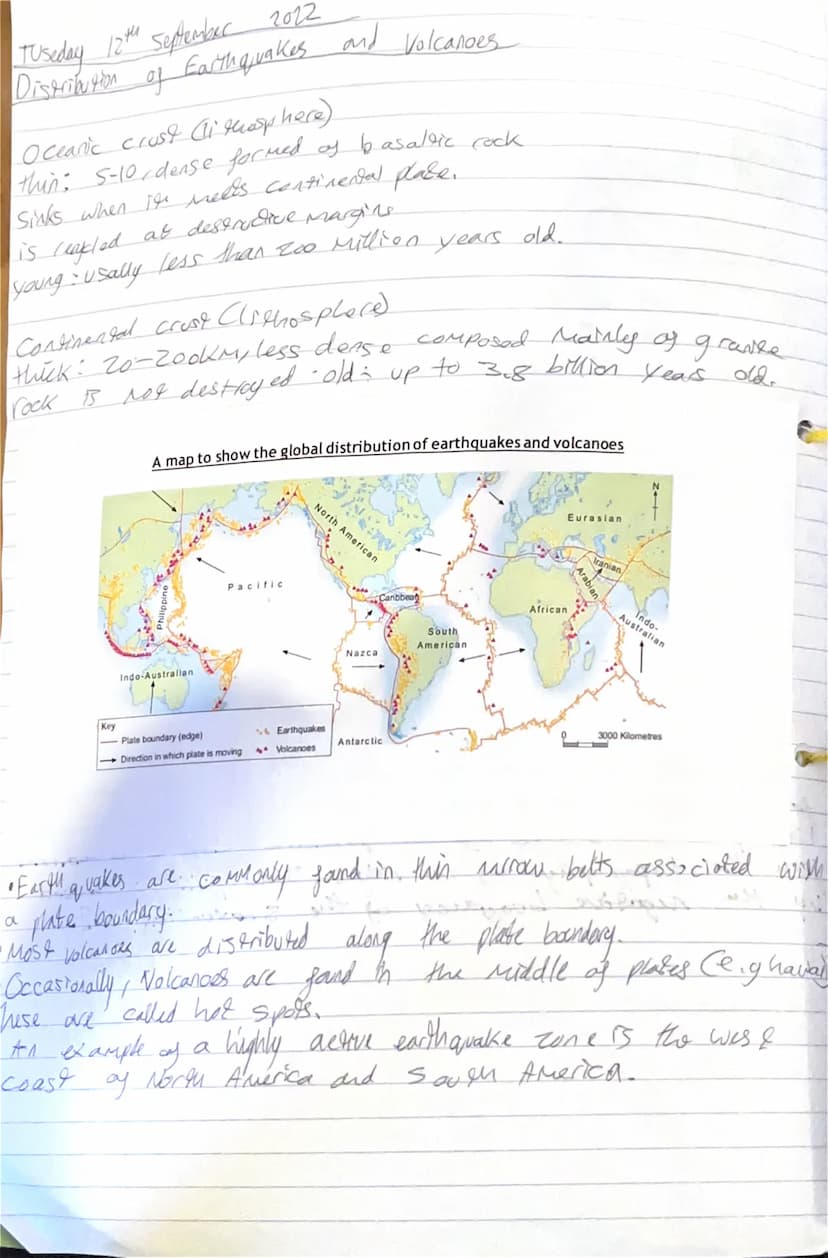 Tuseday 12th September 2022
Distribution of Earthquakes and Volcanoes
Oceanic crust (lithosphere)
thin: 5-10, dense formed of basaltic rock
Sinks when it meets continental plate.
is recycled at destructive margins
young: usally less than 200 million years old.
Continental crust (lithosphere)
thick: 20-200km, less dense composed mainly of granite
rock is not destroyed · old: up to 3.8 billion years old.
A map to show the global distribution of earthquakes and volcanoes
N
North American
Eurasian
Pacific
Philippine
Caribbean
Iranian
Arabian
African
Indo-Australian
South American
Nazca
Indo-Australian
Antarctic
Key
Plate boundary (edge)
Direction in which plate is moving
Earthquakes
Volcanoes
0 3000 Kilometres
• Earthquakes are commonly found in thin narrow belts associated with
a plate boundary.
Most volcanoes are distributed along the plate boundary.
Occasionally, Volcanoes are found in the middle of plates (e.g
hese are called hot spots.
An example of a highly active earthquake zone is the west
coast of North America and South America.